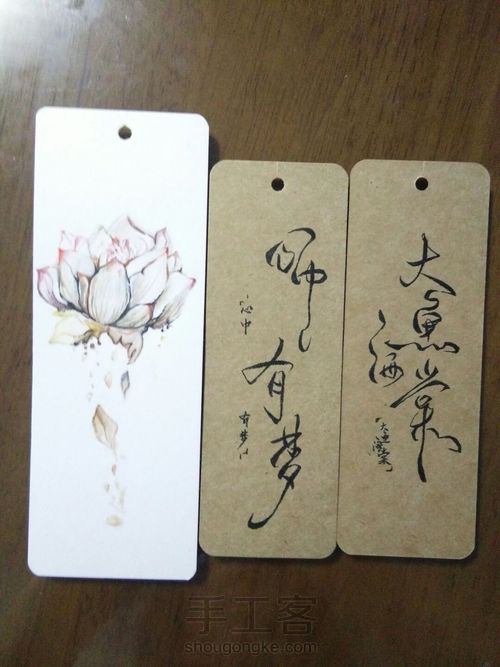 心中
有梦
「心中
有梦」
大鱼
海棠
「大鱼海棠」
手工客
shougongke.com